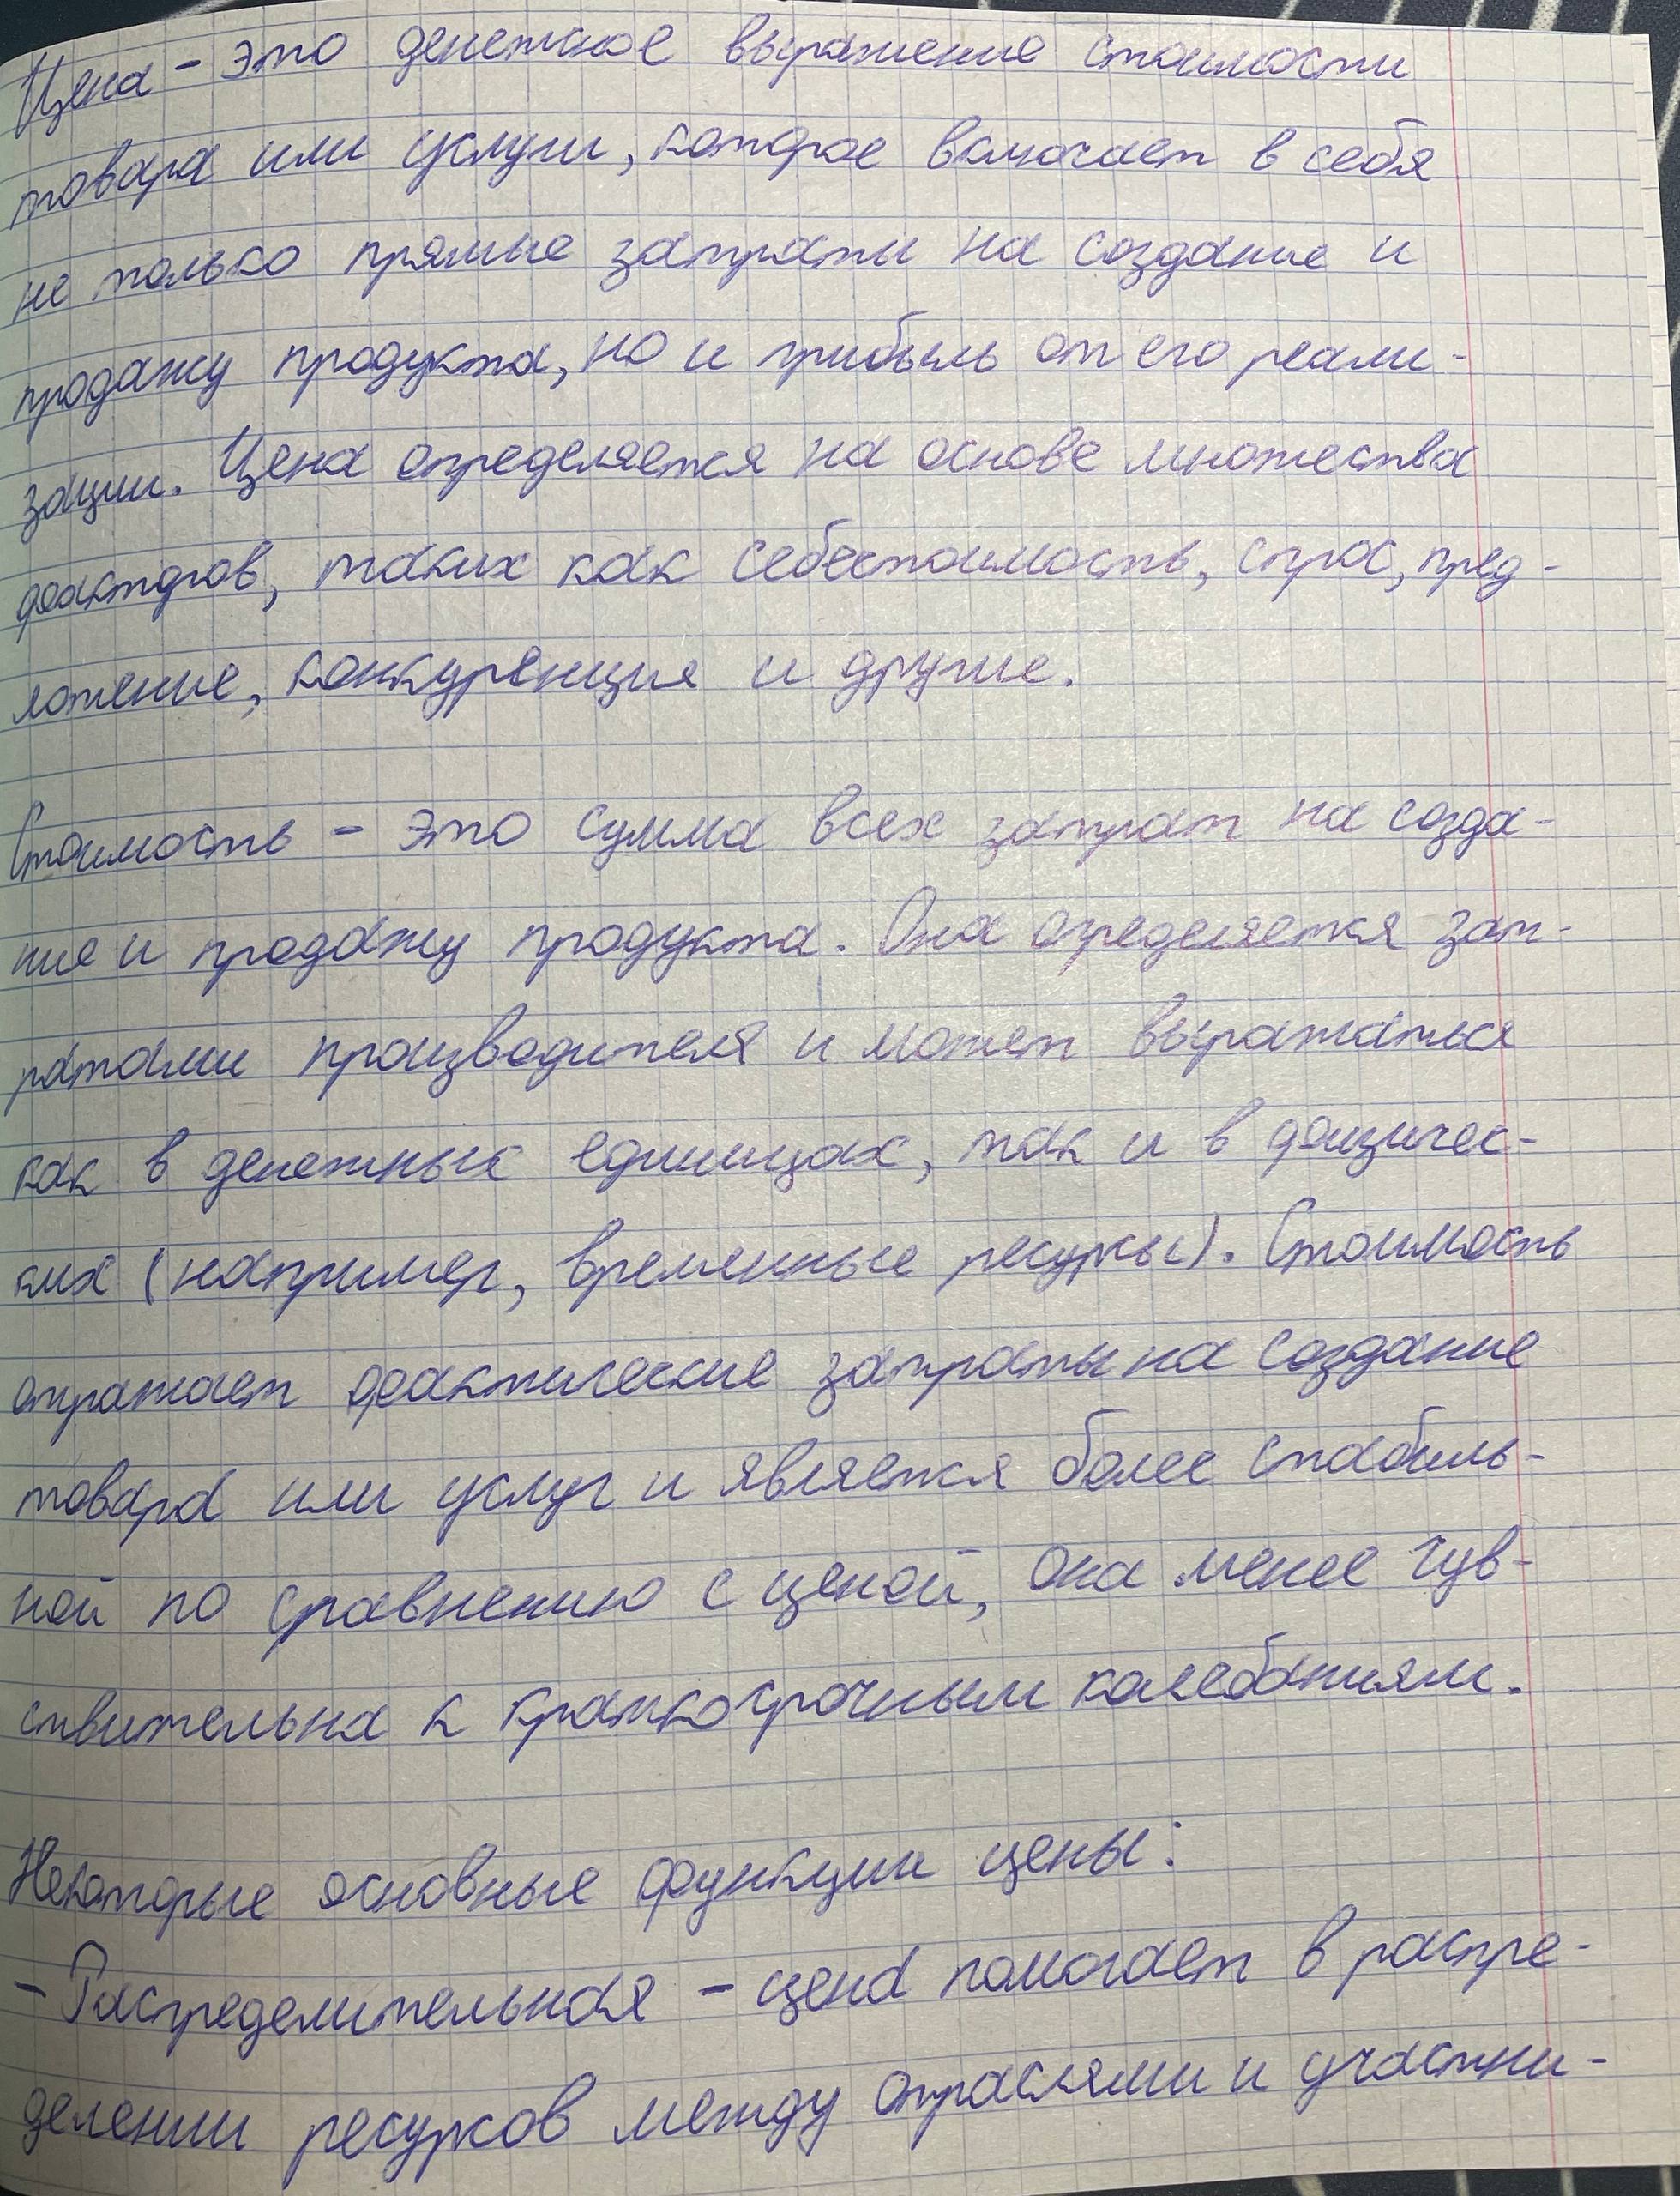 Цена - это денежное выражение стоимости
товара или услуги, которое включает в себя
не только прямые затраты на создание и
продажу продукта, но и прибыль от его реали-
зации. Цена определяется на основе множества
факторов, таких как себестоимость, спрос, пред-
ложение, конкуренция и другие.
Стоимость - это сумма всех затрат на созда-
ние и продажу продукта. Она определяется зат-
ратами производителя и может выражаться
как в денежных единицах, так и в физичес-
ких (например, временные ресурсы). Стоимость
отражает фактические затраты на создание
товара или услуг и является более стабиль-
ной по сравнению с ценой, она менее чув-
ствительна к краткосрочным колебаниям.
Некоторые основные функции цены:
- Распределительная - цена помогает в распре-
делении ресурсов между отраслями и участни-